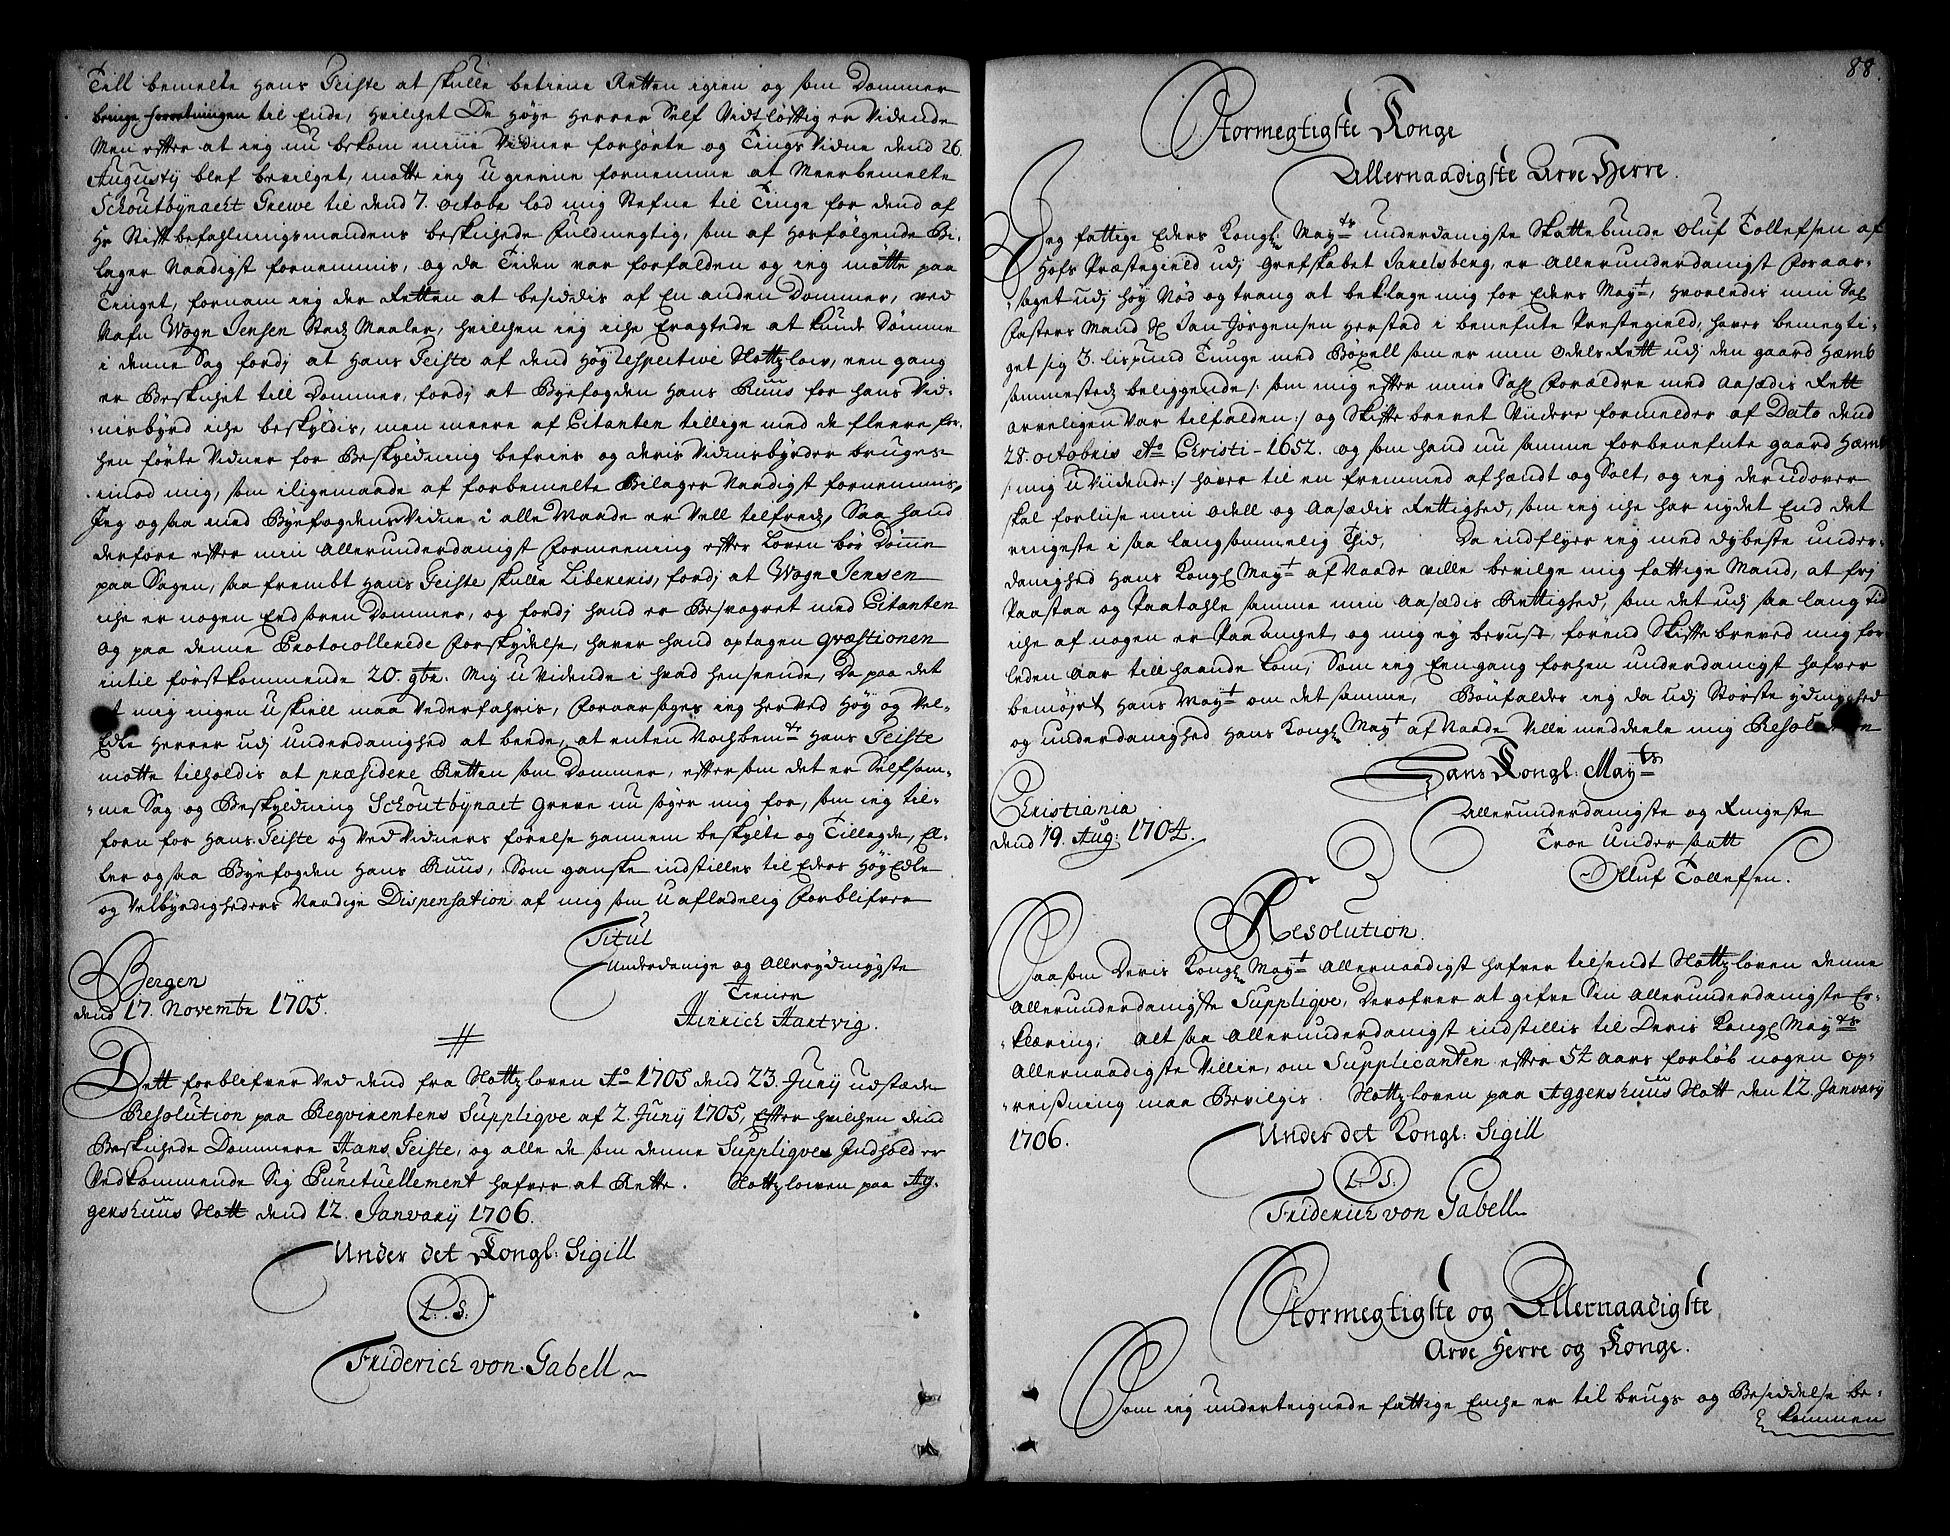 Till bemelte Hans Teiste at skulle betiene Retten igien og som Dommer
bringe forretningen til Ende, hvilchet De Høye Herrer Self Vidtløftig er Vidende
Men efter at ieg nu bekom mine Vidner forhørte og Tings Vidne dend 26.
Augustij blef bevilget, motte ieg ugierne fornemme at Meerbemelte
Schoutbynacht Grewe til dend 7. octobr lod mig Stefne til Tinge for dend af
Hr Stiftbefahlningsmandens beskichede Fuldmegtig, som af hosfølgende Bi-
lager Naadigst fornemmis, og da Tiden var forfalden og ieg møtte paa
Tinget, fornam ieg der Retten at besiddis af En anden Dommer, ved
Nafn Wogn Jensen Stads Maaler, hvilchen ieg iche Eragtede at kunde Dømme
i denne Sag fordj at Hans Teiste af dend Høy respective Slottzlow, een gang
er Beskichet till Dommer, fordj at Byefogden Hans Ruus for hans Vid-
nisbyrd iche beskyldis, men meere af Citanten tillige med de fleere for-
hen førte Vidner for Beskyldning befries og deris Vidnisbyrder bruges
imod mig, som iligemaade af forbemelte Bilager Naadigst fornemmis,
Jeg og saa med Byefogdens Vidne i alle Maade er Vell tilfreds, Saa hand
derfore efter min Allerunderdanigst Formeening efter Loven bør Dømme
paa Sagen, saa frembt Hans Teiste skulle Libereris, fordj at Wogn Jensen
iche er nogen Eedsoren Dommer, og fordj hand er Besvogret med Citanten
og paa denne Protocollerede Forskydelse, haver hand optagen Qvæstionen
intil førstkommende 20. 9br. Mig uvidende i hvad henseende, Da paa det
at mig ingen uskiell maa Vederfahris, Foraarsages ieg herved Høy og Vel-
Edle Herrer udj underdanighed at bede, at enten Velbemte Hans Teiste
motte tilholdis at præsidere Retten som Dommer, eftersom det er Selfsam-
me Sag og Beskyldning Schoutbynact Greve nu søger mig for, som ieg til-
forn for Hans Teiste og Ved Vidners førelse hannem beskylte og Tillagde, El-
ler ogsaa Byefogden Hans Ruus, Som ganske indstilles til Eders Høy Edle
og Velbyrdigheders Naadige Dispensation af mig som uafladelig Forblifver
Titul
Underdanige og Allerydmygste
Tiener
Hinrich Hartvig.
Bergen
dend 17. Novembr 1705.
Dett forblifver Ved dend fra Slottzloven Ao 1705 dend 23. Junij udstæde
Resolution paa Reqvirentens Suppliqve af 2. Junij 1705, Efter hvilchen dend
Beskichede Dommere Hans Teiste, og alle de som denne Suppliqves Indhold er
Vedkommende Sig Punctuellement hafver at Rette. Slottzloven paa Ag-
gershuus Slott dend 12. Janvarij 1706.
Under det Kongl: Sigill
L. S.
Friderich von Gabell
88.
Stormegtigste Konge
Allernaadigste Arve Herre.
Jeg fattige Eders Kongl Maytz underdanigste Skattebunde Oluf Tollefsen af
Hofs Præstegield udj Grefskabet Jarelsberg, er Allerunderdanigst Foraar-
saget udj høy Nød og trang at beklage mig for Eders Mayt, hvorledis min Sal
Fasters Mand S Jan Jørgensen Herstad i benefnte Prestegield, haver bemegti-
get sig 3. lispund Tunge med Bøxell som er min Odels Rett udj den gaard Hæmb
sammesteds beliggende /: som mig efter mine Sal Forældre med Aasædis Rett
arveligen var tilfalden :/ og Skifte brevet Videre formelder af Dato dend
28. octobris Ao Christi - 1652. og som hand nu samme forbenefnte gaard Hæmb
/: mig uviidende :/ haver til en fremmed afhændt og Solt, og ieg derudover
skal forliise min odell og Aasædis Rettighed, som ieg iche har nydet End det
ringeste i saa langsommelig Tid, Da indflyer ieg med dybeste under-
danighed Hans Kongl Mayt af Naade ville bevilge mig fattige Mand, at frj
Paastaa og Paatahle samme min Aasædis Rettighed, som det udj saa lang Tid
iche af nogen er Paaanchet, og mig ey bevust, førend Skifte breved mig for-
leden Aar till haande kom, Som ieg Eengang forhen underdanigst hafver
bemøjet Hans Mayt om det samme, Bønfalder ieg da udj Største ydmyghed
og underdanighed Hans Kongl Mayt af Naade Ville meddeele mig Resolution
Hans Kongl: Mayts
Allerunderdanigste og Ringeste
Troe Undersaatt
Olluf Tollefsen.
Christiania
dend 19. Aug: 1704.
Resolution.
Saasom Deris Kongl Mayt Allernaadigst hafver tilsendt Slottzloven denne
Allerunderdanigste Suppliqve, Derofver at gifve Sin Allerunderdanigste Er-
klæring; Alt saa Allerunderdanigst indstillis til Deris Kongl Mayts
Allernaadigste Villie, om Supplicanten efter 54 Aars forløb nogen op-
reisning maa Bevilgis. Slottzloven paa Aggershuus Slott den 12. Janvary
1706.
Under det Kongl: Sigill
L. S.
Friderich von Gabell
Stormegtigste og Allernaadigste
Arve Herre og Konge.
Som ieg underteignede fattige Enche er til brugs og Besiddelse be-
kommen